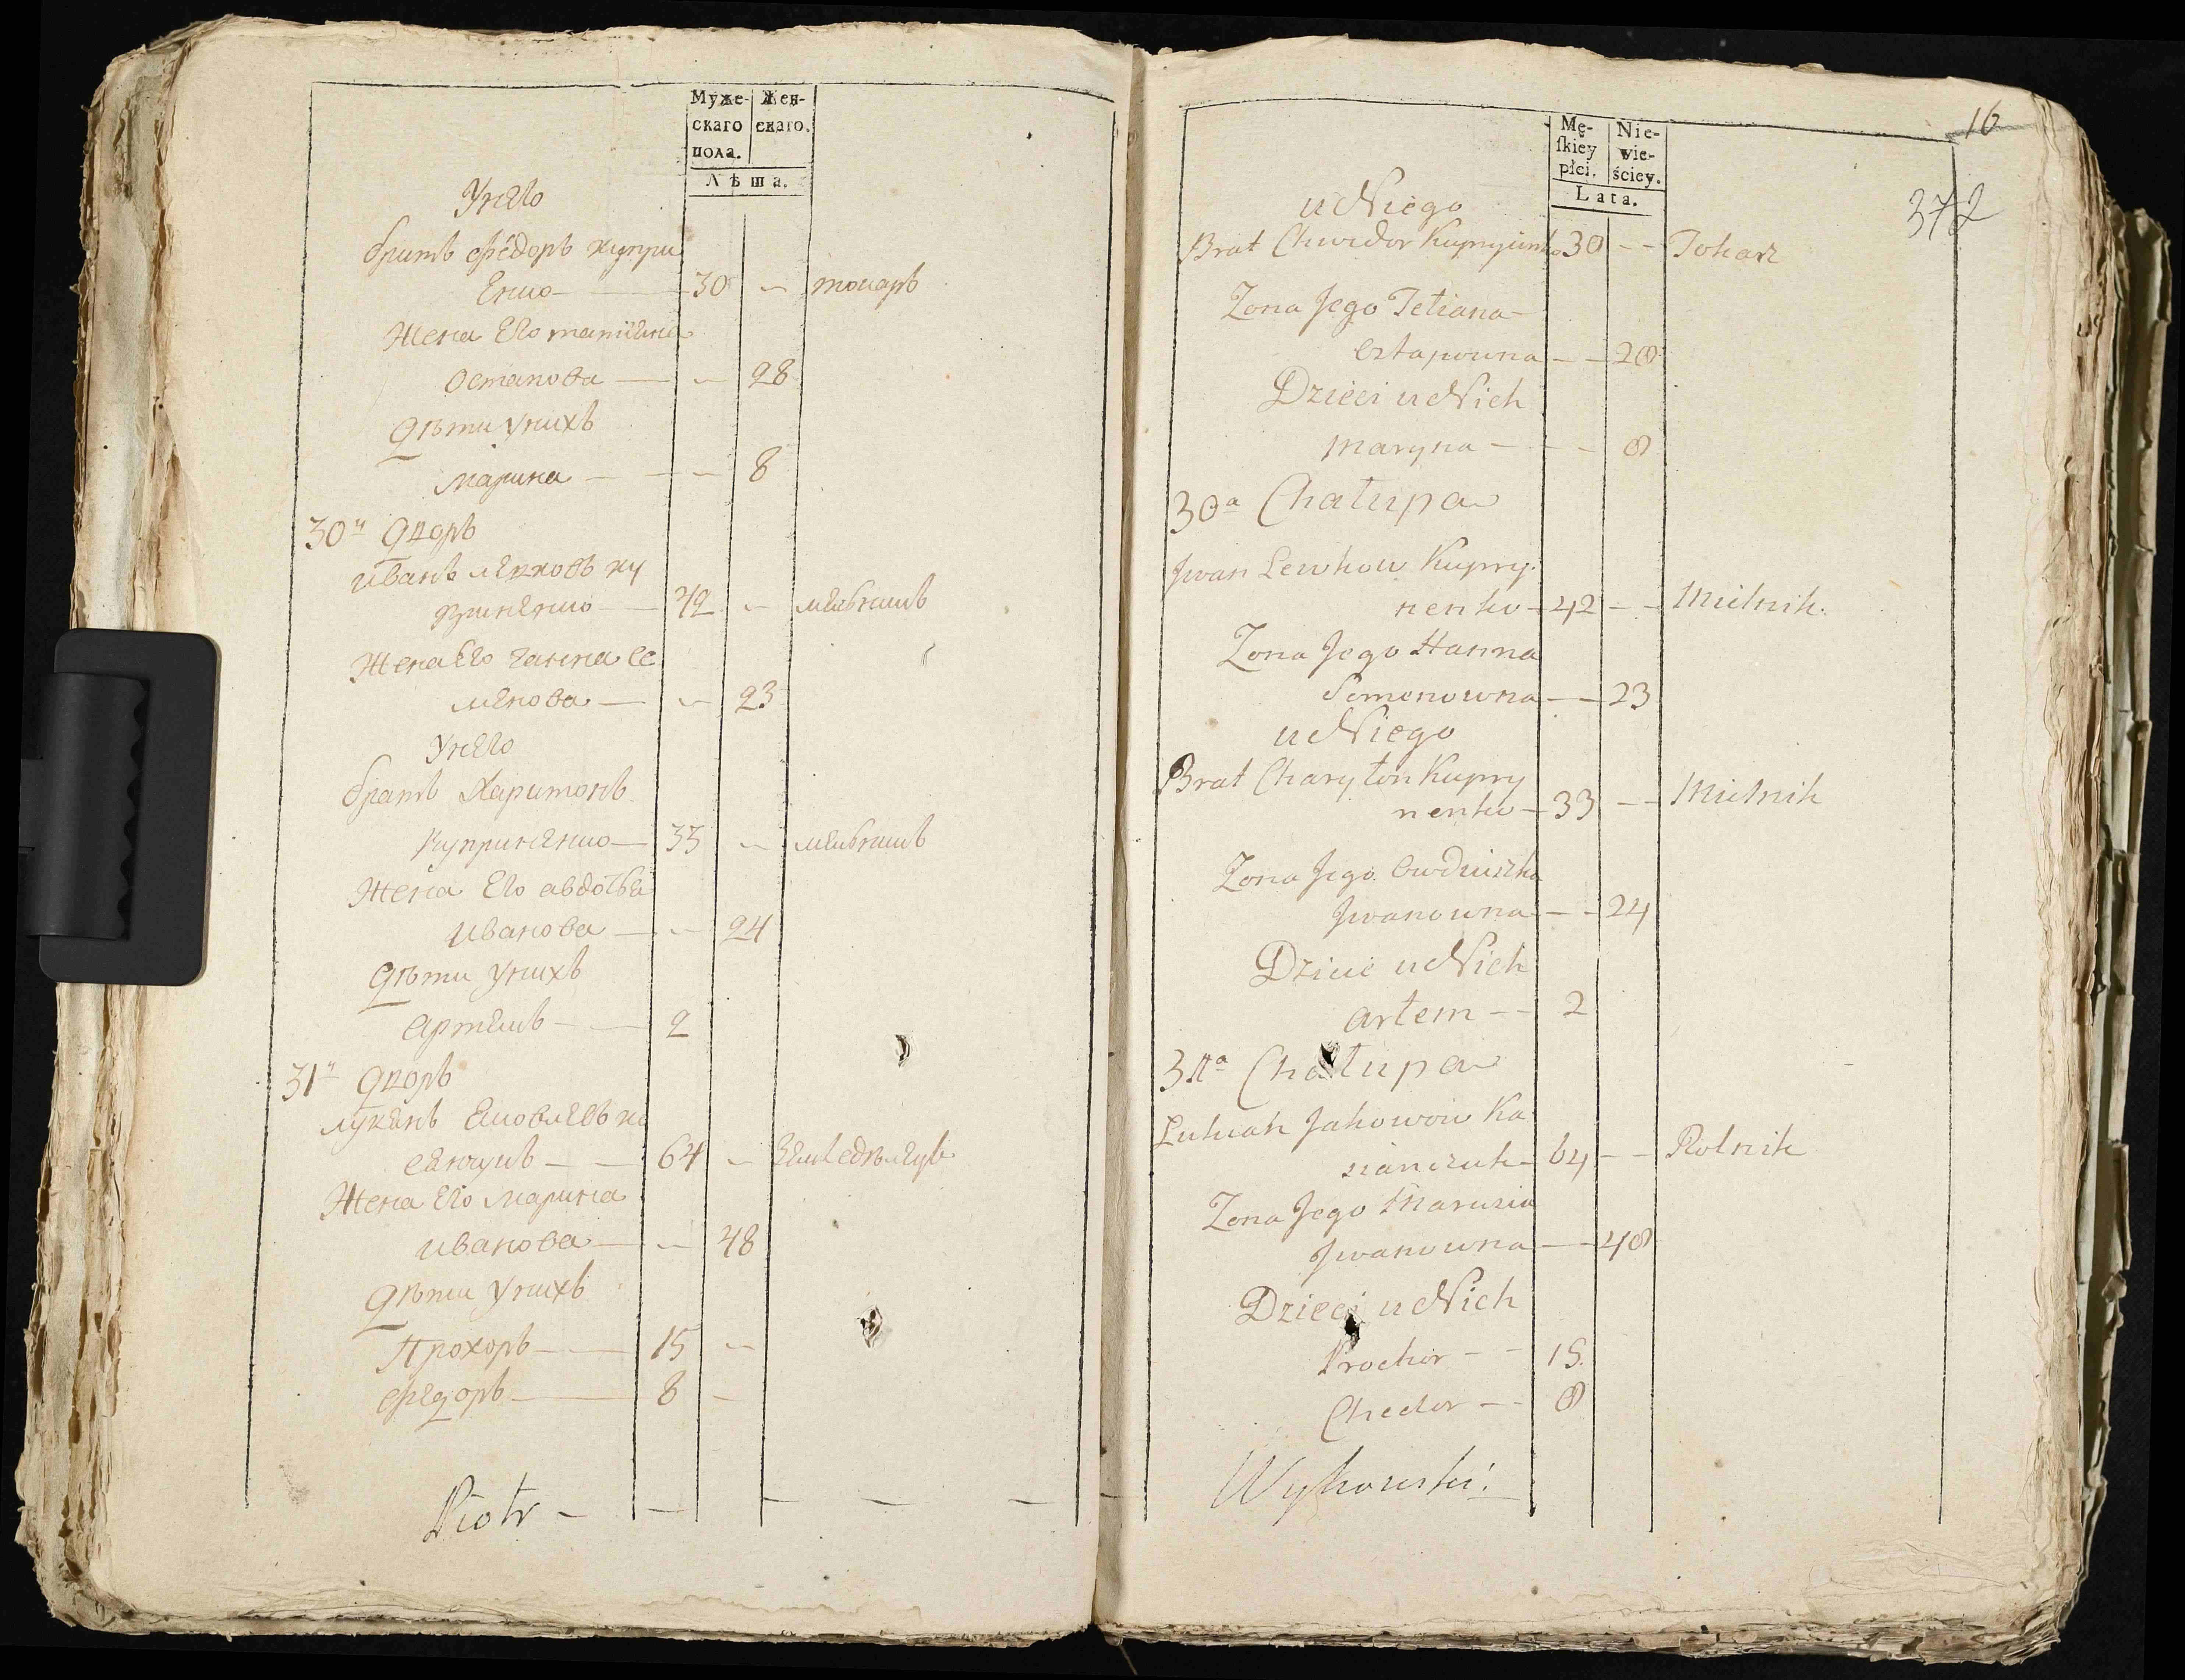 Муже-
скаго
пола.
Жен-
скаго.
Лѣта.
Унего
братъ Фёдоръ купри
енко — 30 — токаръ
Жена Его татияна
Остапова — — 28
Дѣти унихъ
Марина — — 8
30й Дворъ
Иванъ левковъ ку
приненко — 42 — мельникъ
Жена Его ганна се
менова — — 23
Унего
братъ Харитонъ
Куприненко — 33 — мельникъ
Жена Его авдотья
Иванова — — 24
Дѣти унихъ
Артемъ — 2
31й Дворъ
лукянъ Яковлевъ ка
— 64 — земледѣлецъ
Жена Его Марина
Иванова — — 48
Дѣти унихъ
Прохоръ — 15 —
Федоръ — 8 —
Piotr —
16
372
Mę-
ſkiey
płci.
Nie-
wie-
ściey.
Lata.
u Niego
Brat Chwedor Kupryienko 30 — — Tokarz
Zona Jego Tetiana —
Ostapowna — — 28
Dzieci u Nich
Maryna — — — 8
30a Chałupa
Jwan Lewkow Kupry
nenko — 42 — — Mielnik.
Zona Jego Hanna
Semenowna — — 23
u Niego
Brat Charyton Kupry
nenko — 33 — — Mielnik
Zona Jego Owduszka
Jwanowna — — 24
Dzieci u Nich
Artem — — 2
31a Chałupa
Lukian Jakowow Ka
sianczuk — 64 — — Rolnik
Zona Jego Marusia
Jwanowna — — 48
Dzieci u Nich
Prochor — — 15.
Chedor — — 8
Wyhowski.